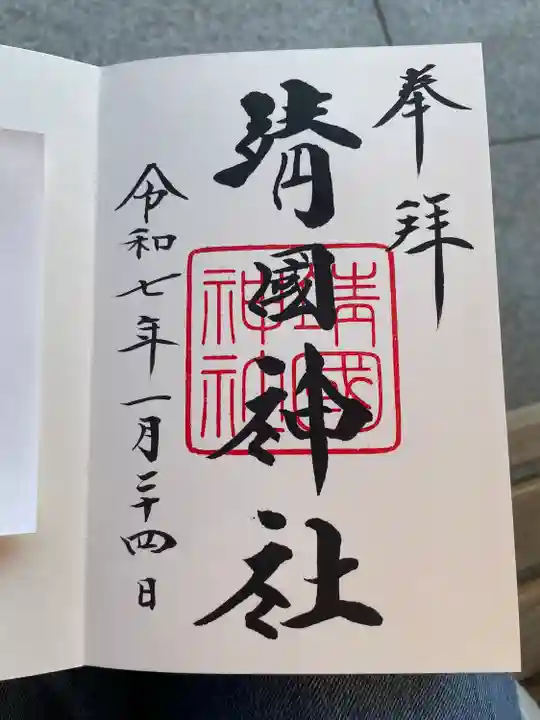 奉拝
靖國神社
靖國
神社
令和七年一月二十四日